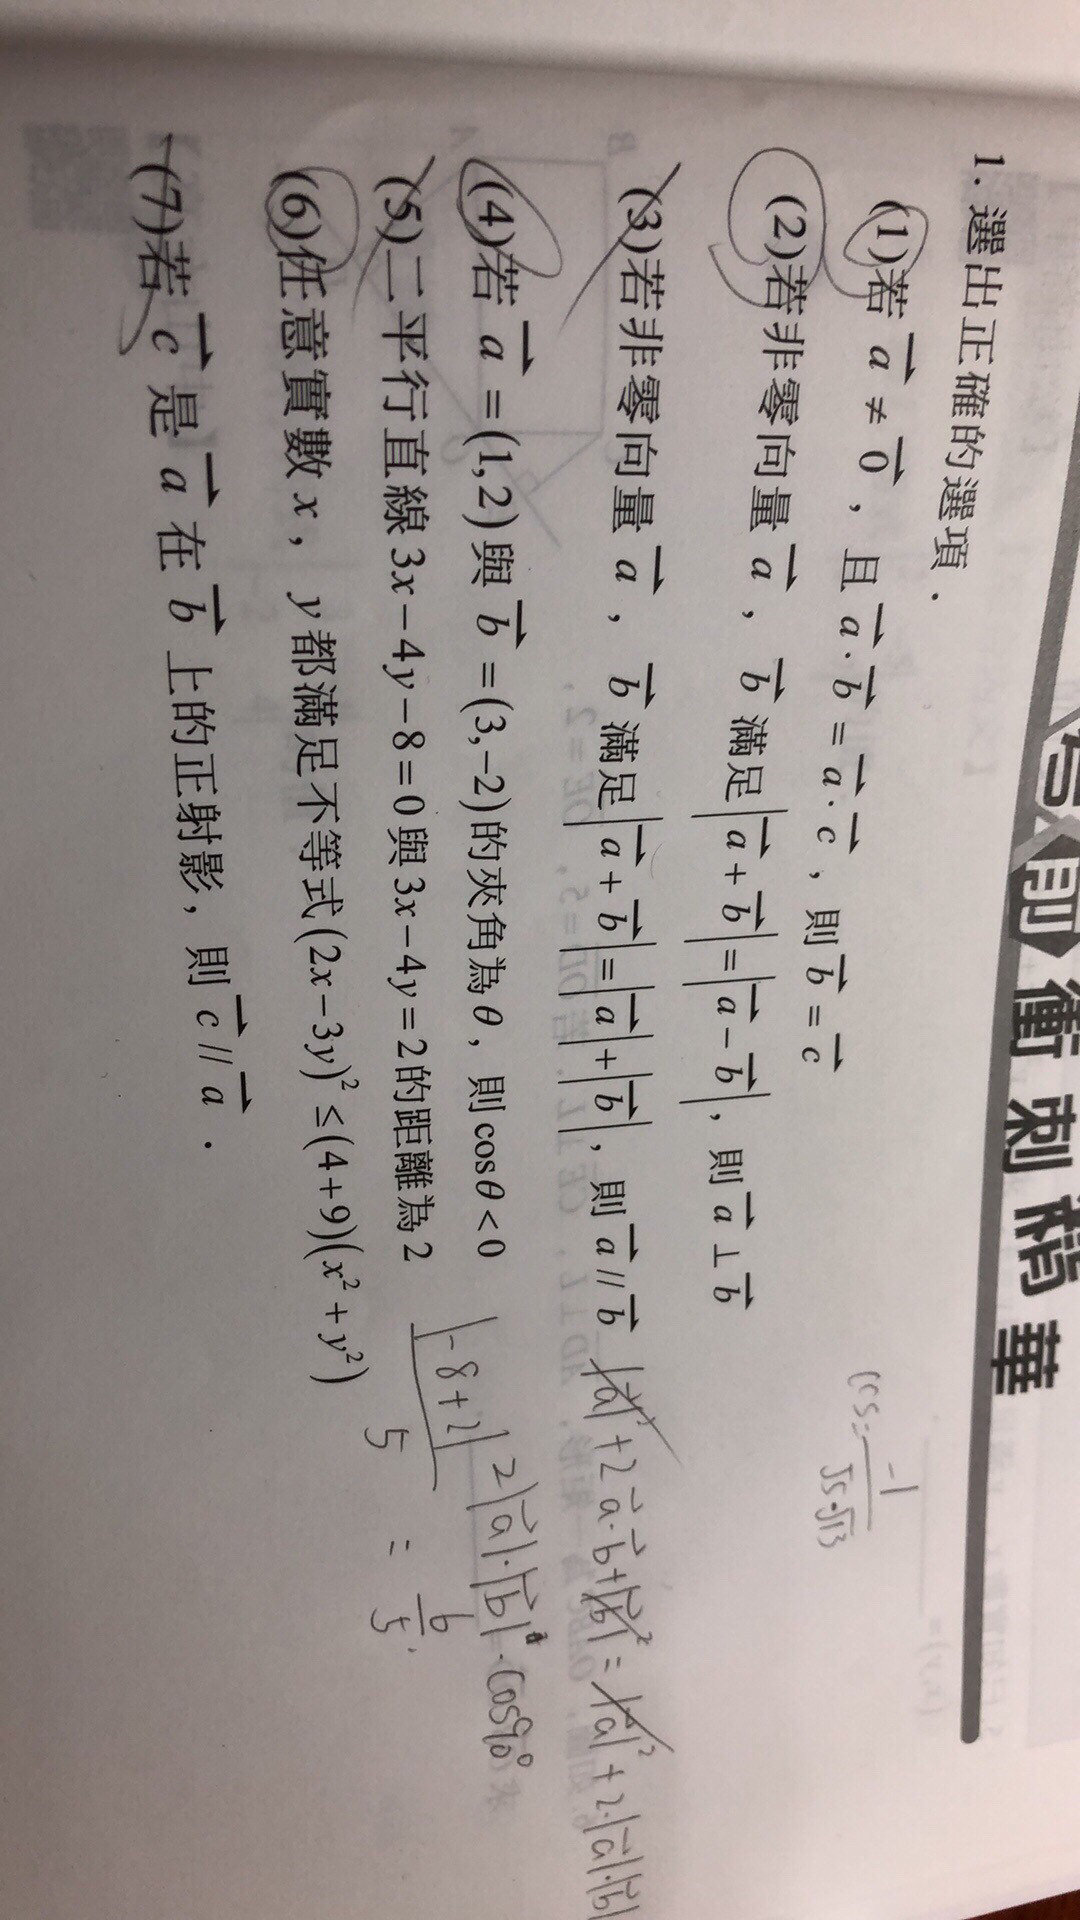 前衝刺精華
1. 選出正確的選項．
(1)若 a ≠ 0，且 a · b = a · c，則 b = c
(2)若非零向量 a，b 滿足|a + b|=|a − b|，則 a ⊥ b
(3)若非零向量 a，b 滿足|a + b|=|a|+|b|，則 a // b
(4)若 a = (1,2)與 b = (3,−2)的夾角為θ，則cosθ < 0
(5)二平行直線 3x − 4y − 8 = 0 與 3x − 4y = 2 的距離為 2
(6)任意實數 x，y 都滿足不等式(2x − 3y)² ≤ (4+9)(x² + y²)
(7)若 c 是 a 在 b 上的正射影，則 c // a．
cos = -1/√5·√13
|a|² + 2a·b + |b|² = |a|² + 2·|a|·|b|
2|a|·|b|·cos90°
|-8+2|/5 = 6/5